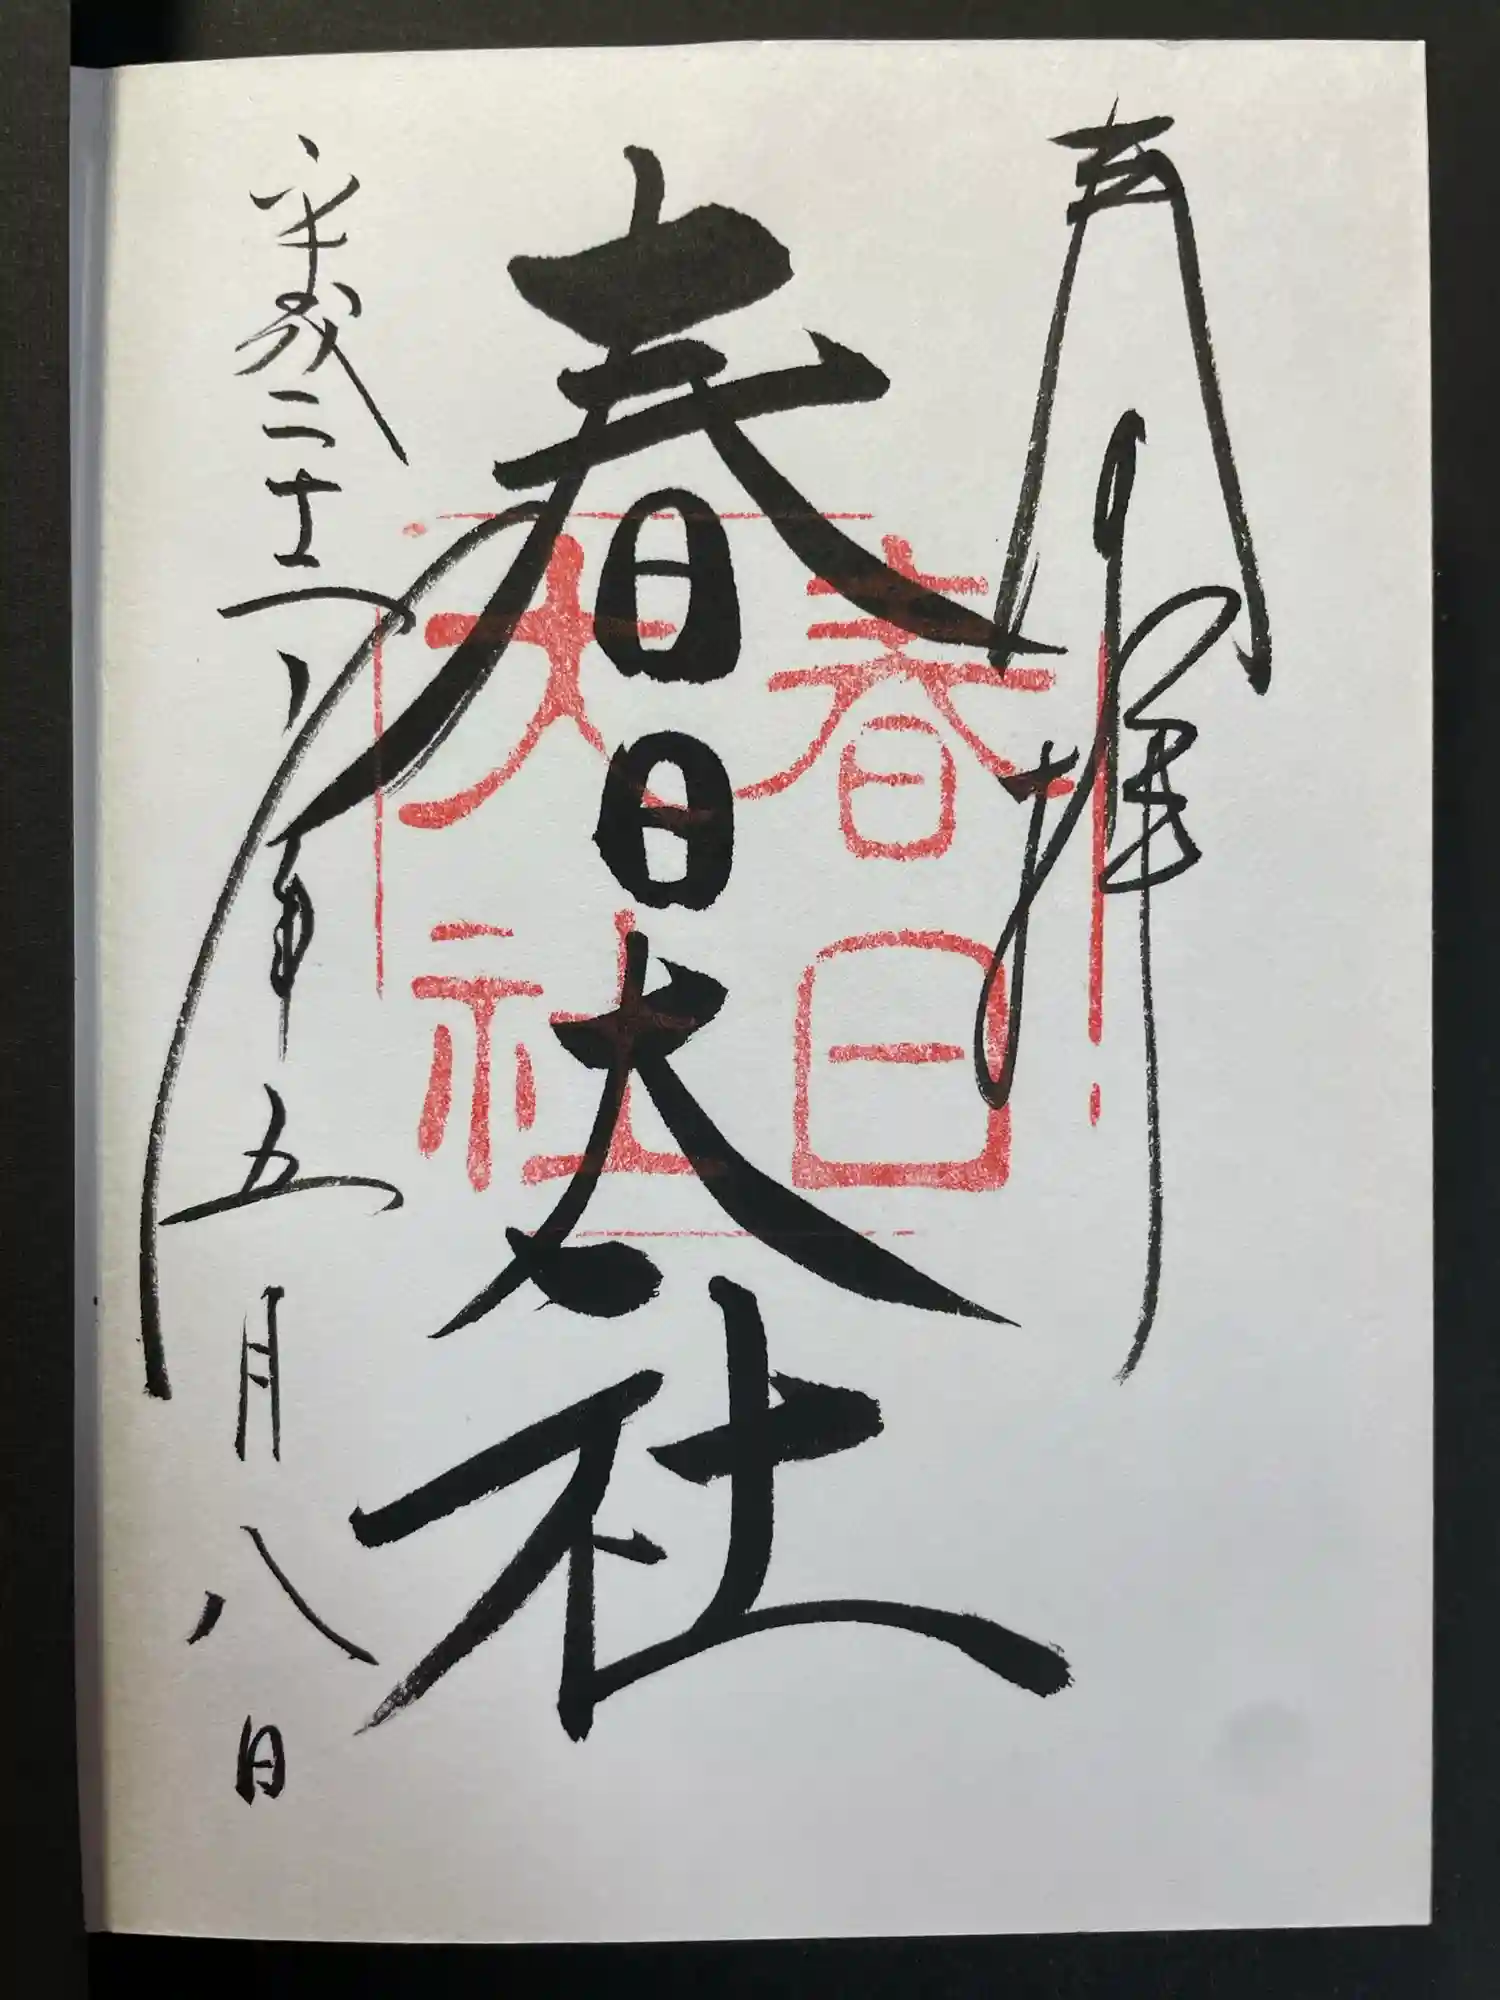 奉拝
春日大社
春日
大社
平成二十六年五月八日